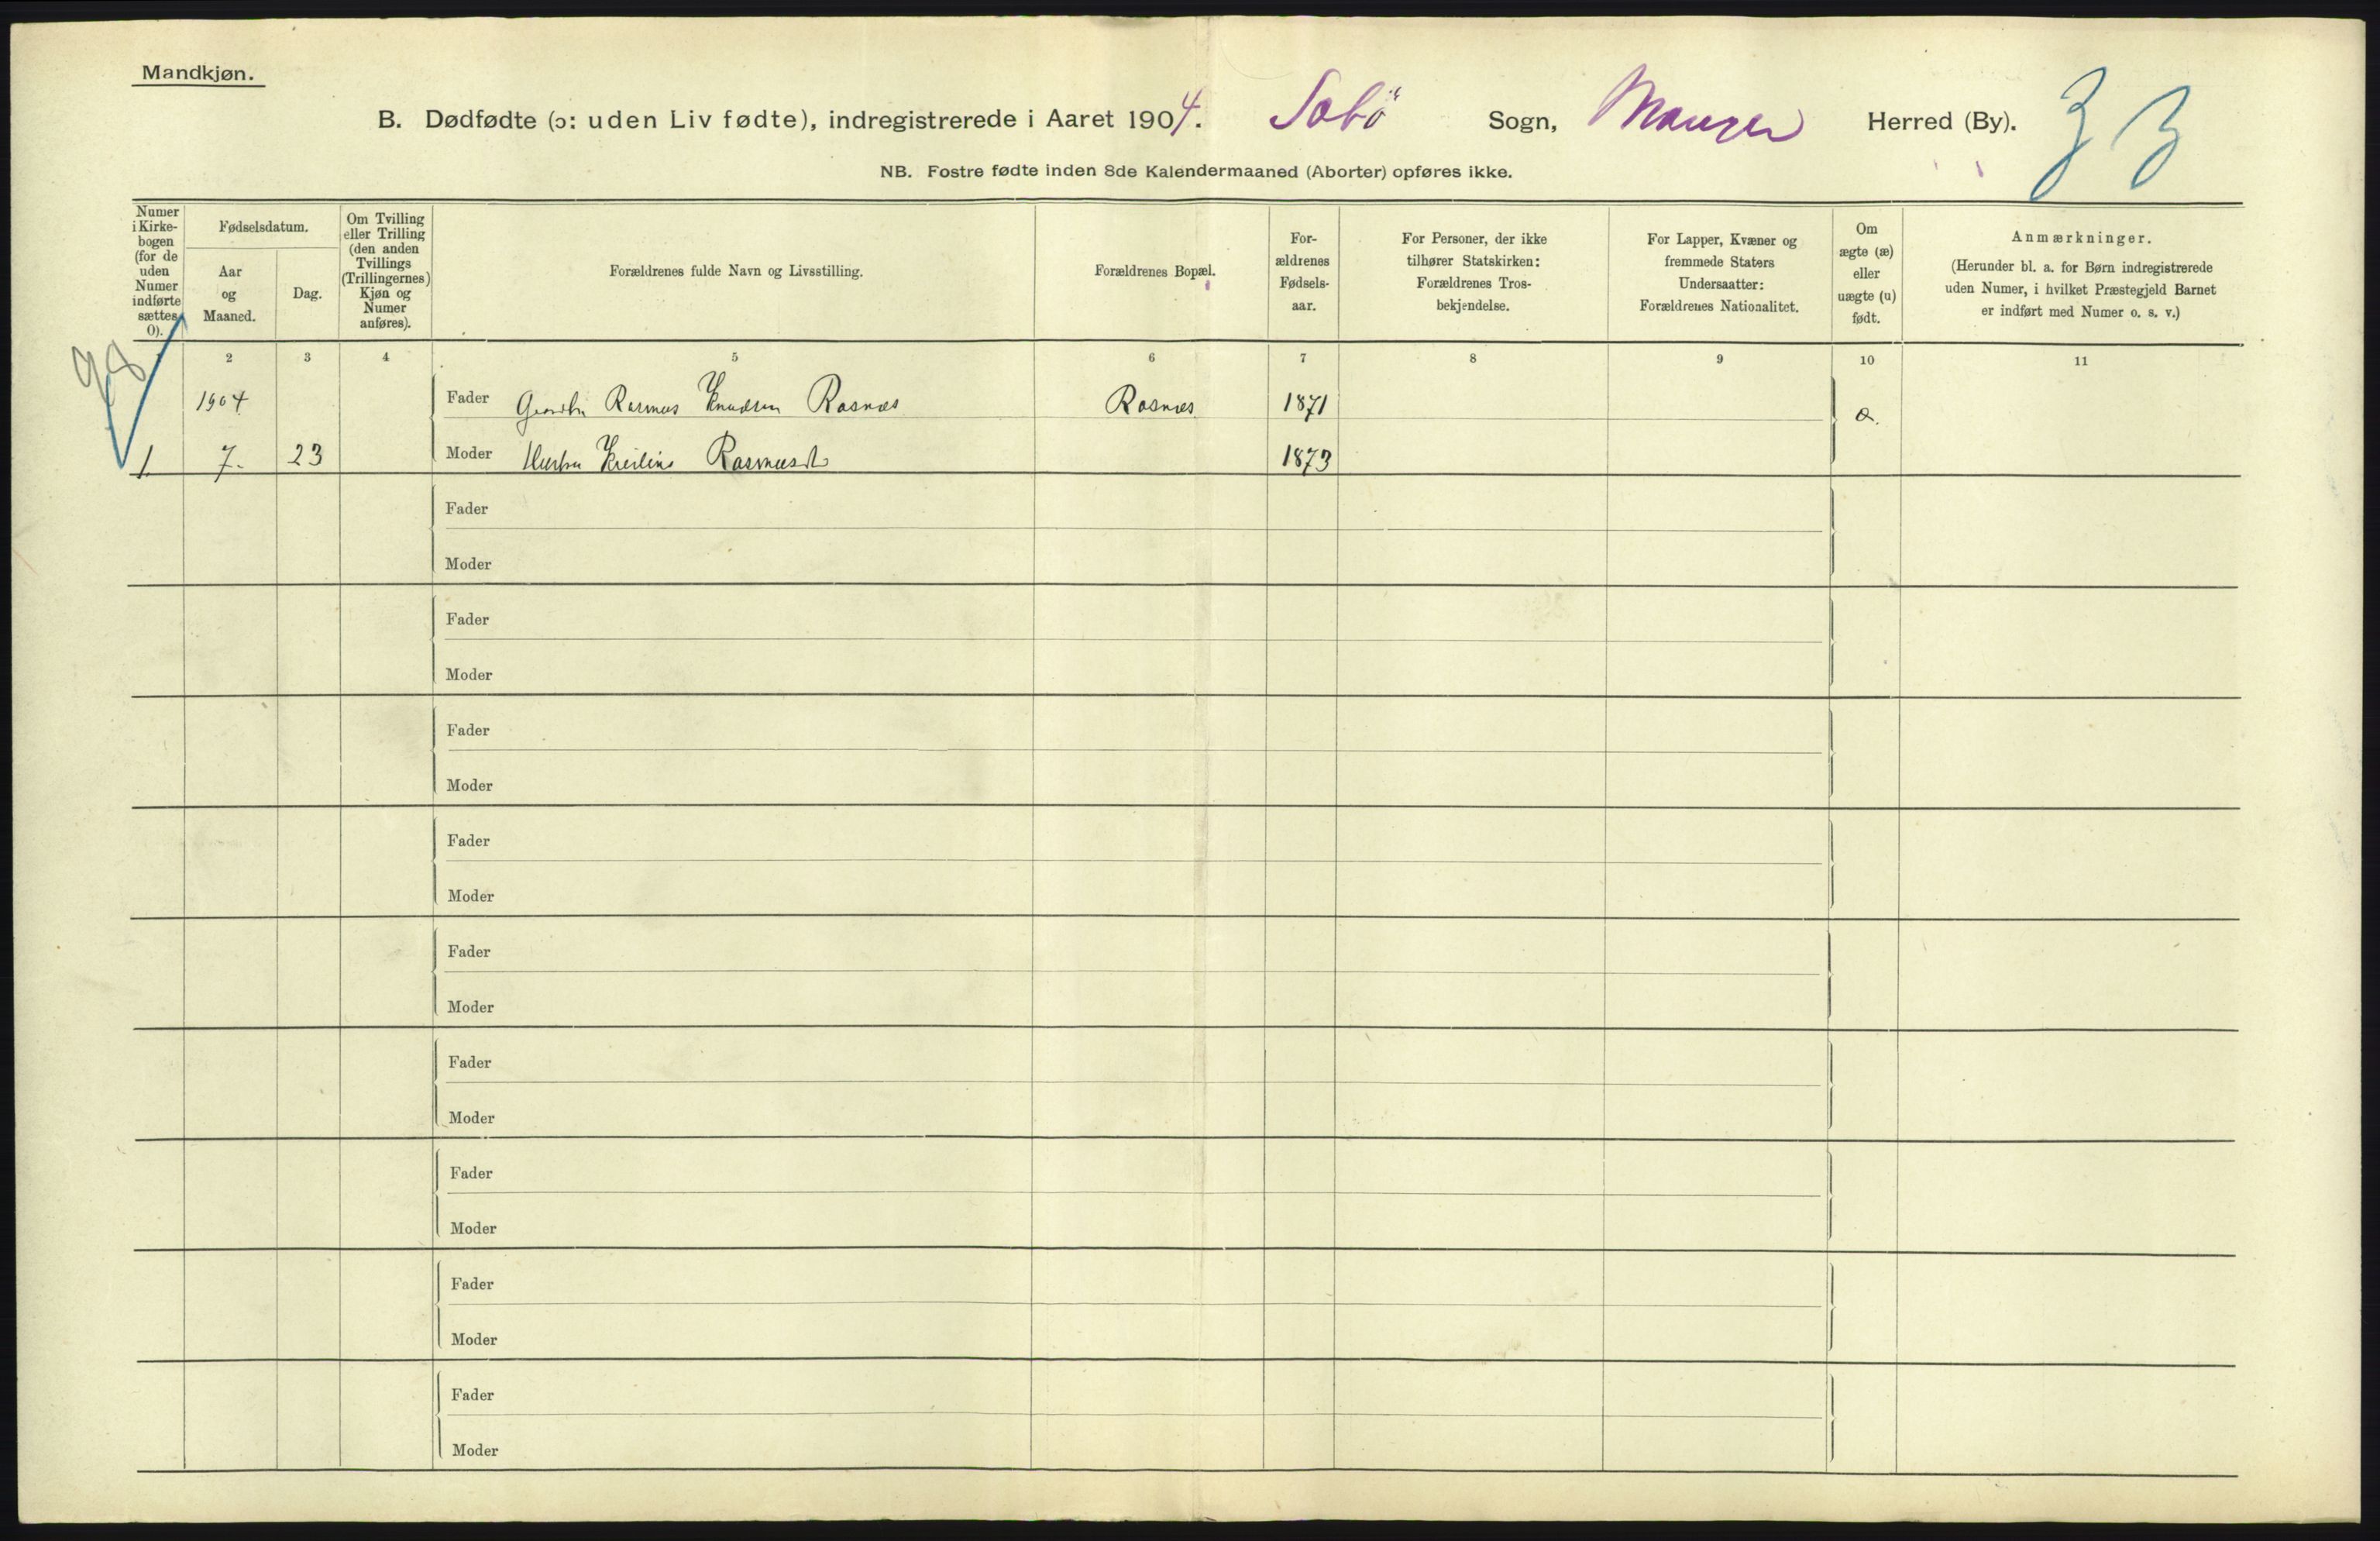 Mandkjøn.
B. Dødfødte (ɔ: uden Liv fødte), indregistrerede i Aaret 1904. Sæbø Sogn, Manger Herred (By).
NB. Fostre fødte inden 8de Kalendermaaned (Aborter) opføres ikke.
Numer i Kirke-bogen (for de uden Numer indførte sættes 0).
Fødselsdatum.
Aar og Maaned.
Dag.
Om Tvilling eller Trilling (den anden Tvillings (Trillingernes) Kjøn og Numer anføres).
Forældrenes fulde Navn og Livsstilling.
Forældrenes Bopæl.
For-ældrenes Fødsels-aar.
For Personer, der ikke tilhører Statskirken: Forældrenes Tros-bekjendelse.
For Lapper, Kvæner og fremmede Staters Undersaatter: Forældrenes Nationalitet.
Om ægte (æ) eller uægte (u) født.
Anmærkninger.
(Herunder bl. a. for Børn indregistrerede uden Numer, i hvilket Præstegjeld Barnet er indført med Numer o. s. v.)
2 3 4 5 6 7 8 9 10 11
1904 Fader Rasmus Knudsen Rosnes Rosnes 1871 æ.
1 7. 23 Moder Hustru Rasmusdt 1873
Fader
Moder
Fader
Moder
Fader
Moder
Fader
Moder
Fader
Moder
Fader
Moder
Fader
Moder
Fader
Moder
Fader
Moder